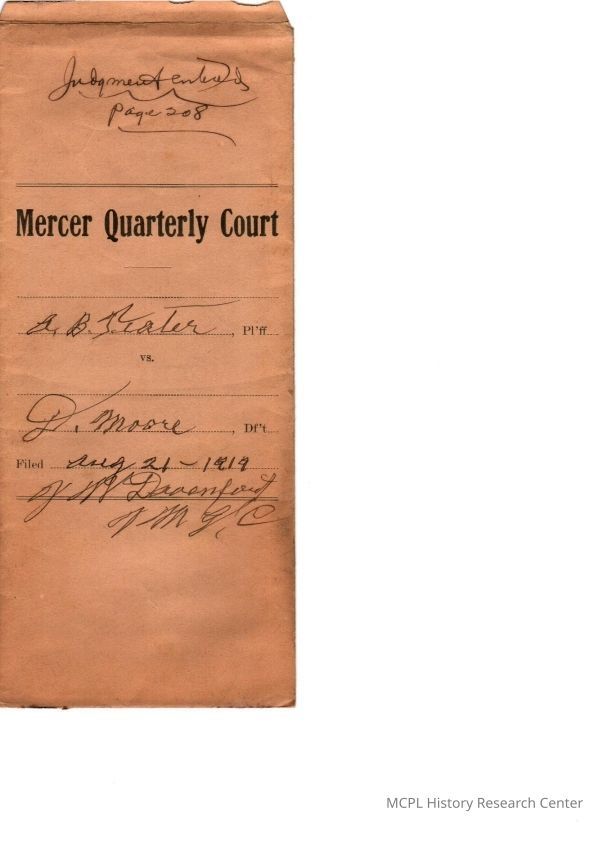 Judgment entered
Page 208
Mercer Quarterly Court
B. , Pl'ff
vs.
D. Moore , Df't
Filed Aug 21-1919
J W Davenport
J M Q C
MCPL History Research Center